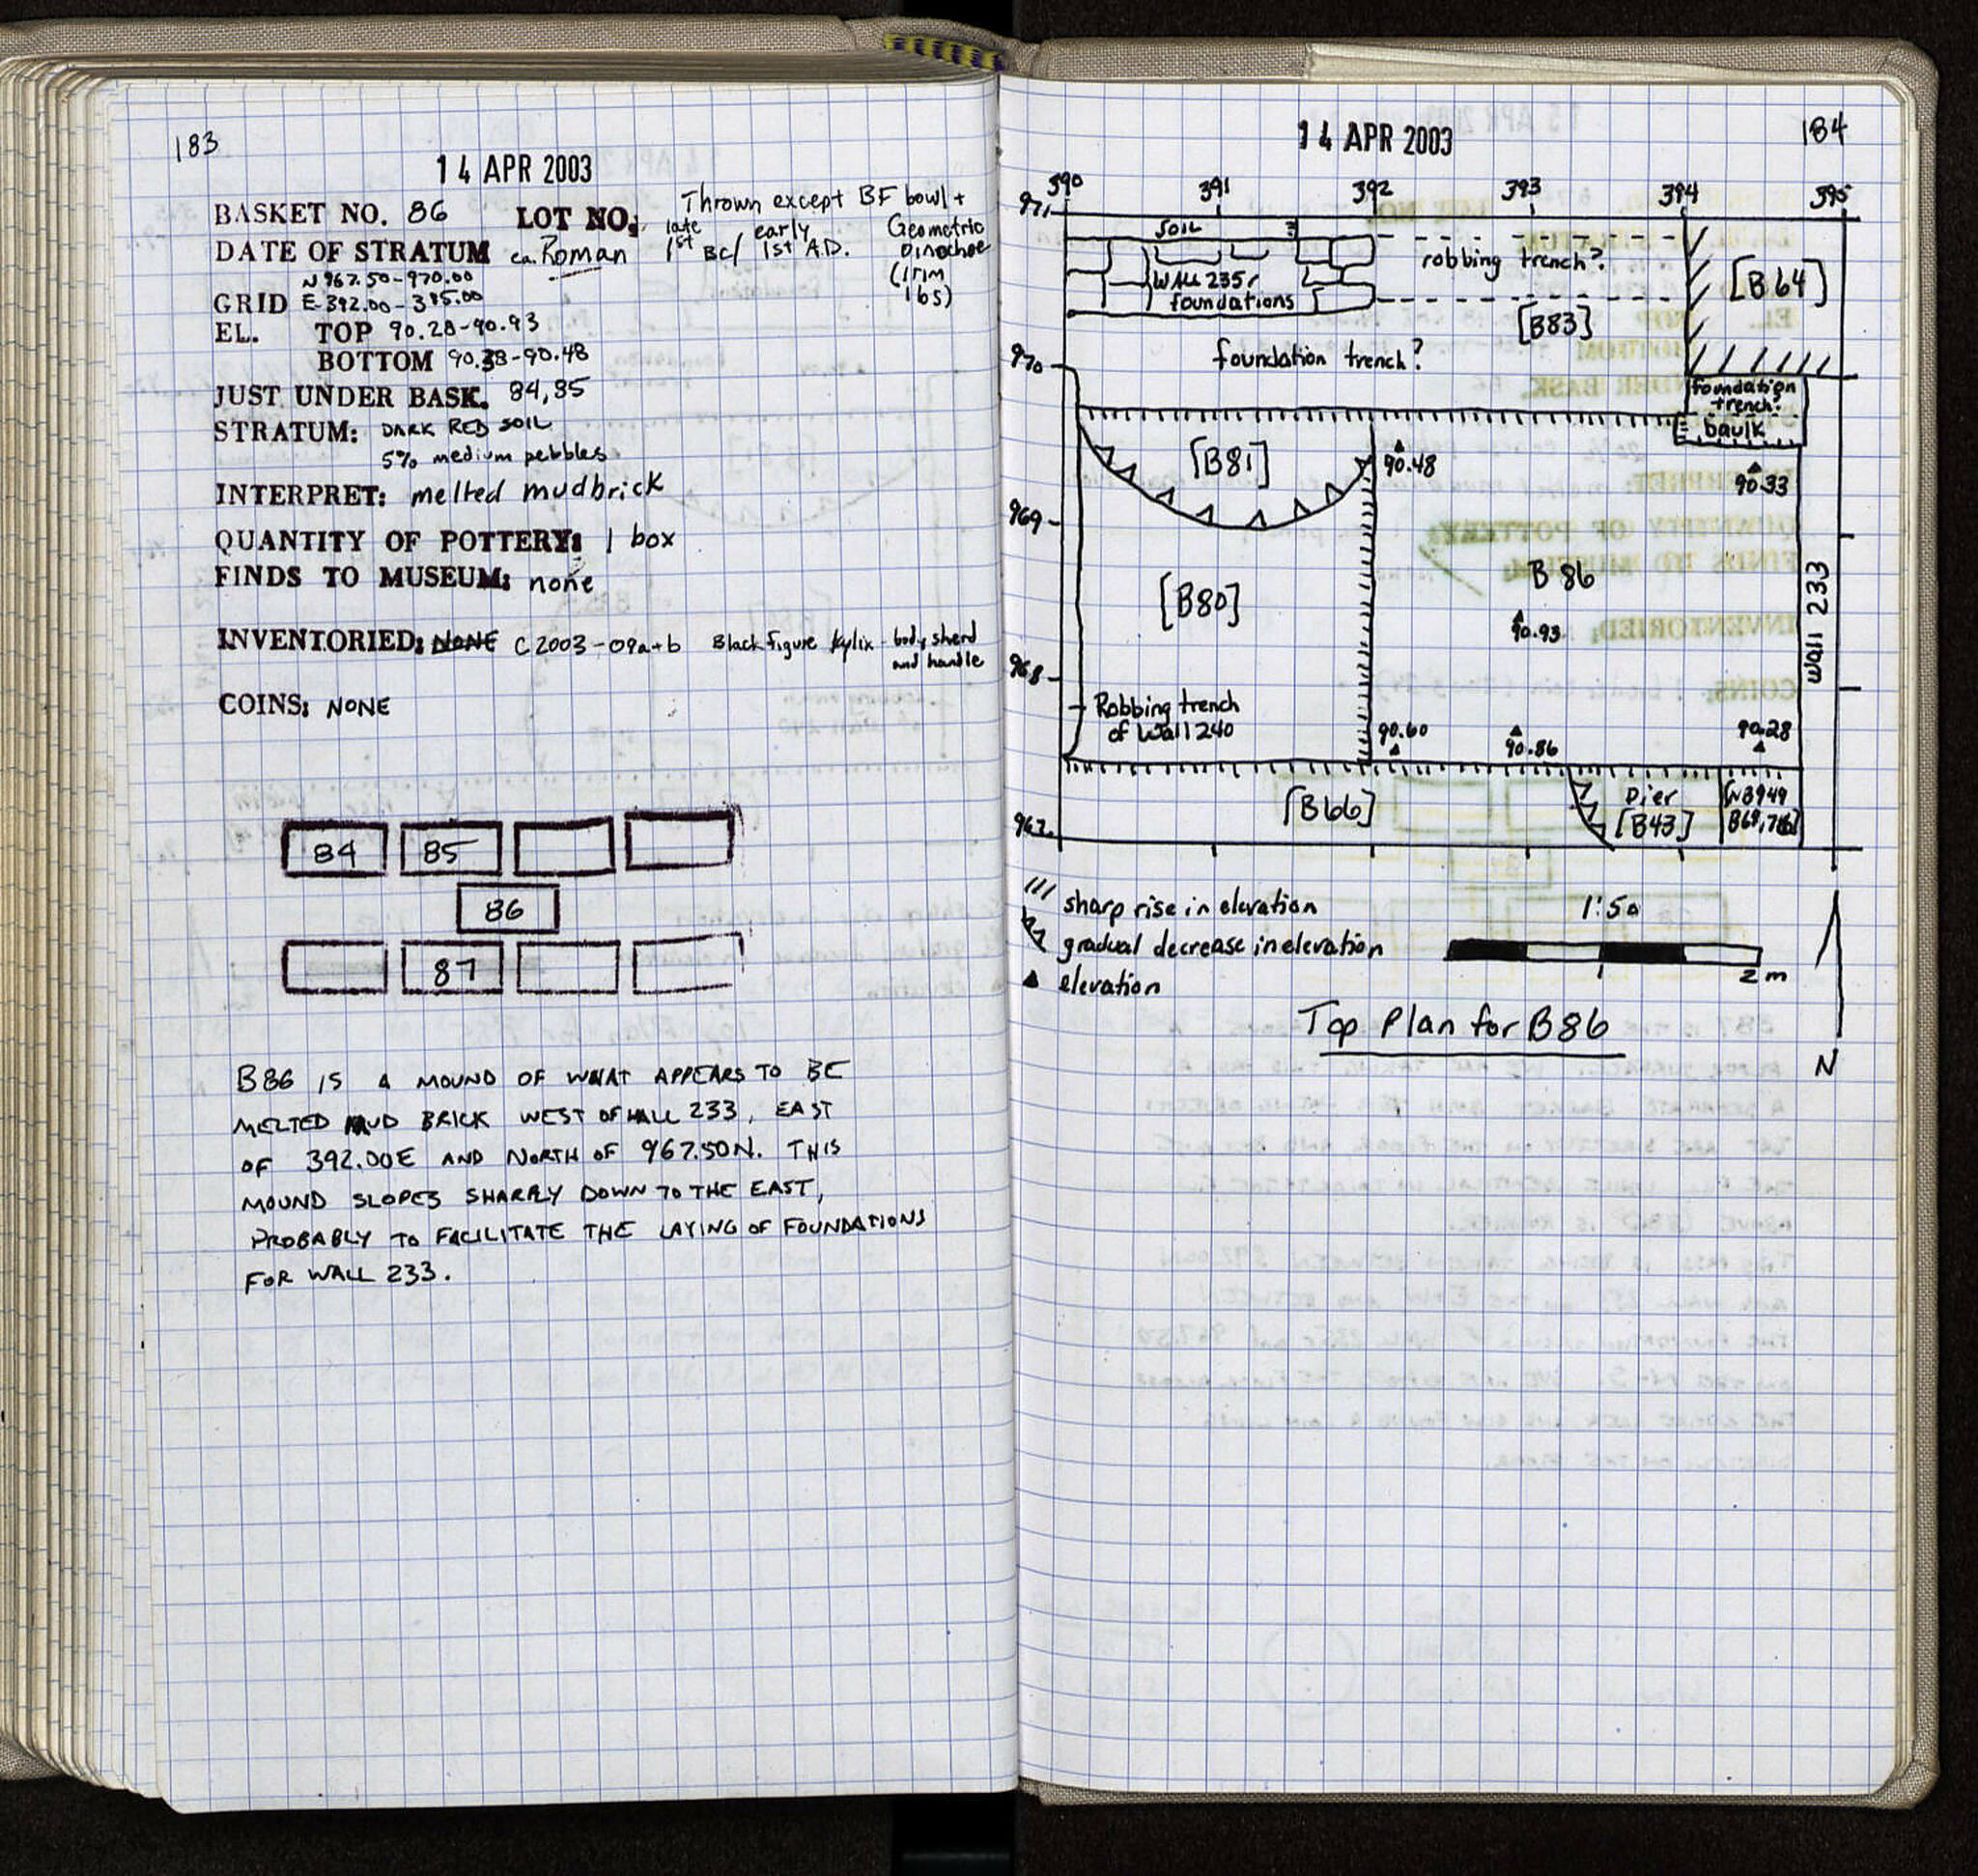 183
14 APR 2003
BASKET NO. 86 LOT NO: Thrown except BF bowl + Geometric Oinochoe (1 rim 1 bs)
DATE OF STRATUM ca. Roman late 1st BC/ early 1st A.D.
GRID N 967.50-970.00
E-392.00-395.00
EL. TOP 90.28-90.93
BOTTOM 90.38-90.48
JUST UNDER BASK. 84,85
STRATUM: DARK RED SOIL
5% medium pebbles
INTERPRET: melted mudbrick
QUANTITY OF POTTERY: 1 box
FINDS TO MUSEUM: none
INVENTORIED: NONE C 2003-09a+b Black Figure Kylix - body sherd
and handle
COINS: NONE
84 85
86
87
B86 IS A MOUND OF WHAT APPEARS TO BE
MELTED MUD BRICK WEST OF WALL 233, EAST
OF 392.00E AND NORTH OF 967.50N. THIS
MOUND SLOPES SHARPLY DOWN TO THE EAST,
PROBABLY TO FACILITATE THE LAYING OF FOUNDATIONS
FOR WALL 233.
14 APR 2003
184
390 391 392 393 394 395
971
SOIL
robbing trench?
[B64]
WALL 235
foundations
[B83]
970
foundation trench?
foundation
trench?
baulk
[B81]
90.48
90.33
969
B 86
[B80]
Wall 233
90.93
968
Robbing trench
of Wall 240
90.60
90.86
90.28
[B66]
Pier
[B43]
967
/// sharp rise in elevation
gradual decrease in elevation
▲ elevation
1:50
2 m
Top Plan for B86
N